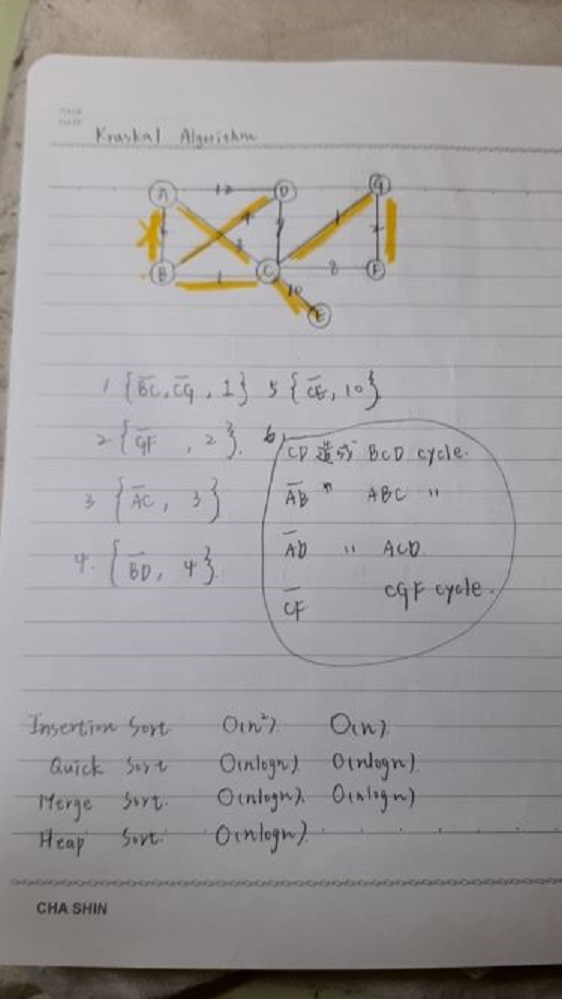 Kruskal Algorithm
A 12 D G
4 3 1
B 1 C 8 F
10
E
1 {BC, CG, 1} 5 {CE, 10}
2 {GF, 2}. 6.
CD 造成 BCD cycle.
3 {AC, 3}
AB " ABC "
AD " ACD
4. {BD, 4}.
CF CGF cycle.
Insertion Sort O(n²) O(n)
Quick Sort O(nlogn) O(nlogn)
Merge Sort. O(nlogn). O(nlogn)
Heap Sort. O(nlogn).
CHA SHIN